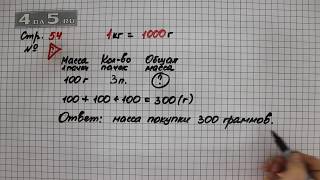 4 ДА 5.RU
Стр. 54 1кг = 1000г
№
Масса Кол-во Общая
1 пачки пачек масса
100г 3п. ?
100 + 100 + 100 = 300 (г)
Ответ: масса покупки 300 граммов.